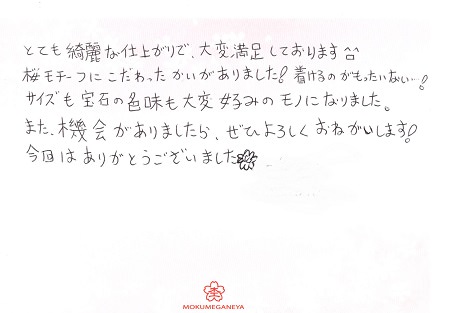 とても綺麗な仕上がりで、大変満足しております^^
桜モチーフにこだわったかいがありました！着けるのがもったいない…！
サイズも宝石の色味も大変好みのモノになりました。
また、機会がありましたら、ぜひよろしくおねがいします！
今回はありがとうございました
MOKUMEGANEYA